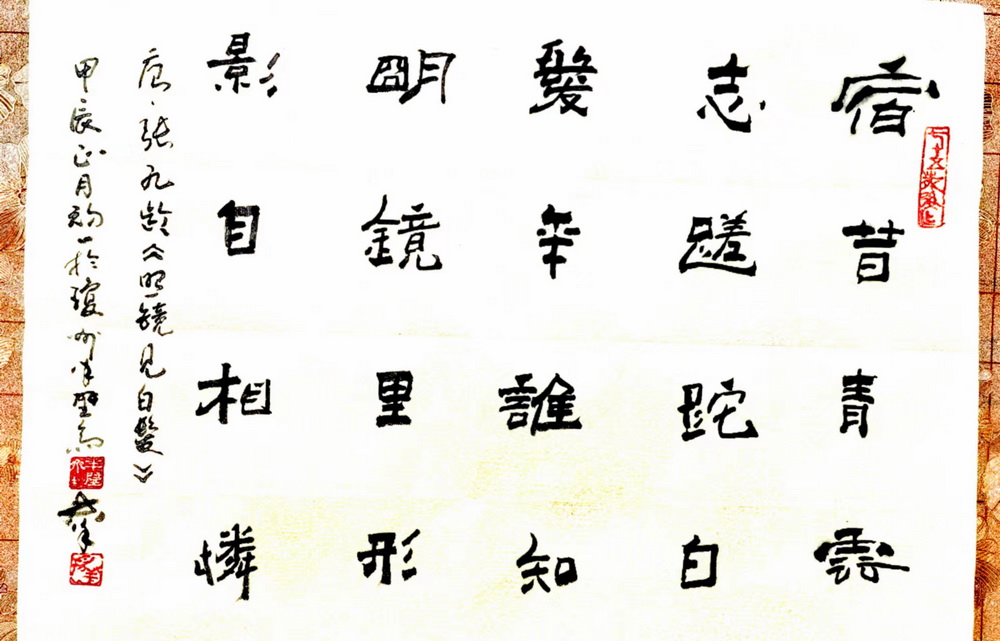 宿昔青雲
志蹉跎白
髮年誰知
明鏡里形
影自相憐
唐·張九齡《明鏡見白髮》
甲辰正月初一於瓊州半壁齋